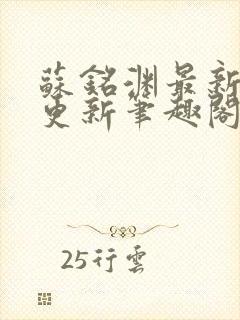 蘇銘淵最新
更新筆趣閣
25行雲